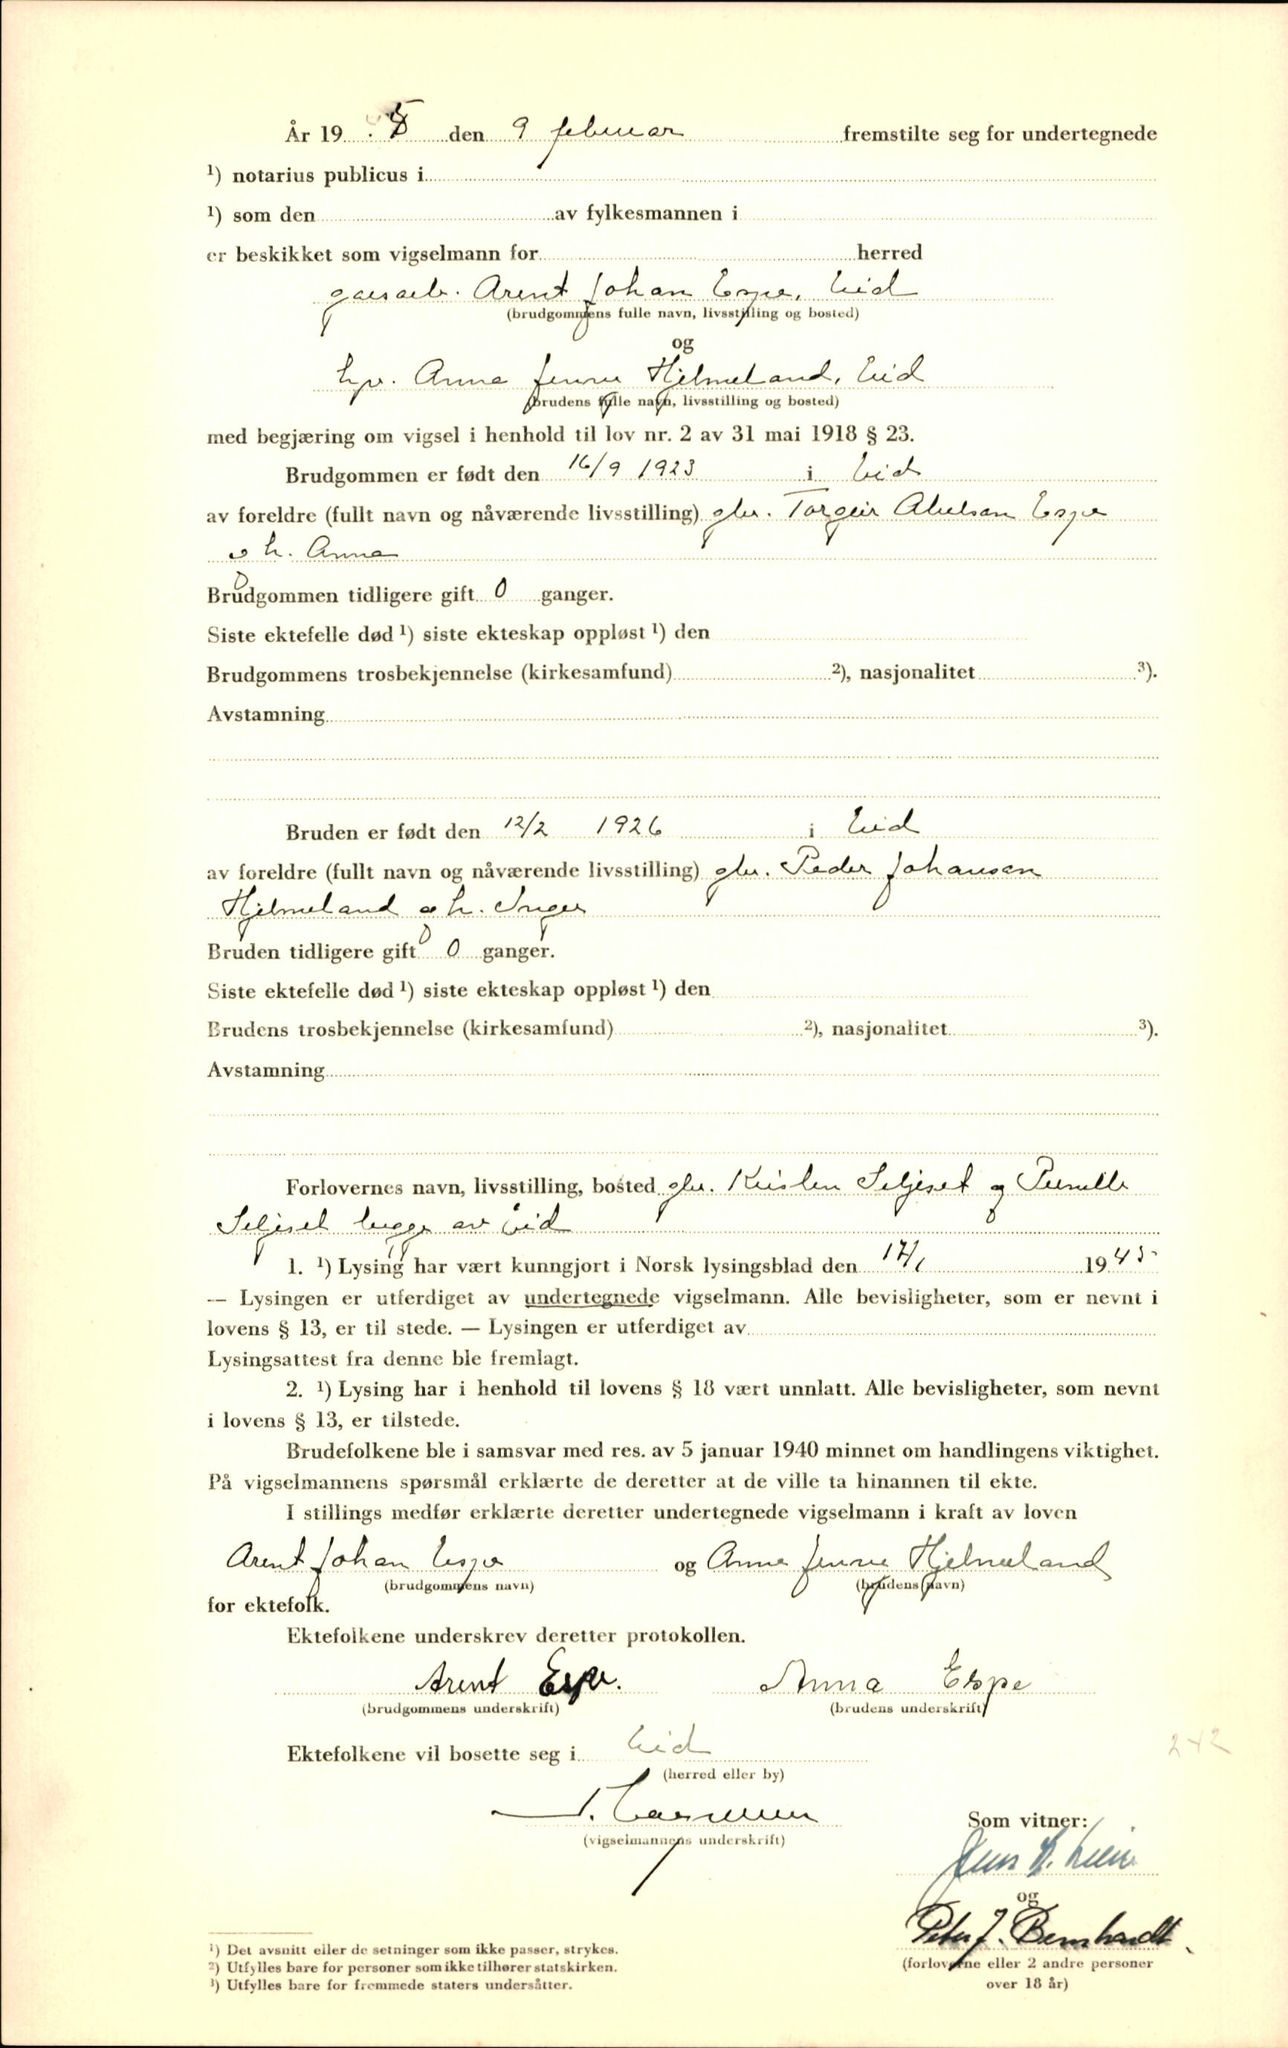 År 19 45 den 9 februar fremstilte seg for undertegnede
1) notarius publicus i
1) som den av fylkesmannen i
er beskikket som vigselmann for herred
Arent Johan Espe, Eid
(brudgommens fulle navn, livsstilling og bosted)
og
Anna Jenne Hjelmeland, Eid
(brudens fulle navn, livsstilling og bosted)
med begjæring om vigsel i henhold til lov nr. 2 av 31 mai 1918 § 23.
Brudgommen er født den 16/9 1923 i Eid
av foreldre (fullt navn og nåværende livsstilling) gbr. Torgeir Abelsen Espe
og h. Anna
Brudgommen tidligere gift 0 ganger.
Siste ektefelle død 1) siste ekteskap oppløst 1) den
Brudgommens trosbekjennelse (kirkesamfund) 2), nasjonalitet 3).
Avstamning
Bruden er født den 12/2 1926 i Eid
av foreldre (fullt navn og nåværende livsstilling) gbr. Peder Johansen
Hjelmeland og h. Inger
Bruden tidligere gift 0 ganger.
Siste ektefelle død 1) siste ekteskap oppløst 1) den
Brudens trosbekjennelse (kirkesamfund) 2), nasjonalitet 3).
Avstamning
Forlovernes navn, livsstilling, bosted gbr. Kristen Seljeset og Pernille
Seljeset begge av Eid
1. 1) Lysing har vært kunngjort i Norsk lysingsblad den 17/1 1945
— Lysingen er utferdiget av undertegnede vigselmann. Alle bevisligheter, som er nevnt i
lovens § 13, er til stede. — Lysingen er utferdiget av
Lysingsattest fra denne ble fremlagt.
2. 1) Lysing har i henhold til lovens § 18 vært unnlatt. Alle bevisligheter, som nevnt
i lovens § 13, er tilstede.
Brudefolkene ble i samsvar med res. av 5 januar 1940 minnet om handlingens viktighet.
På vigselmannens spørsmål erklærte de deretter at de ville ta hinannen til ekte.
I stillings medfør erklærte deretter undertegnede vigselmann i kraft av loven
Arent Johan Espe og Anna Jenne Hjelmeland
(brudgommens navn) (brudens navn)
for ektefolk.
Ektefolkene underskrev deretter protokollen.
Arent Espe. Anna Espe
(brudgommens underskrift) (brudens underskrift)
Ektefolkene vil bosette seg i Eid
242
(herred eller by)
Som vitner:
(vigselmannens underskrift)
Jens
og
Peter J. Bernhardt.
(forloverne eller 2 andre personer
over 18 år)
1) Det avsnitt eller de setninger som ikke passer, strykes.
2) Utfylles bare for personer som ikke tilhører statskirken.
3) Utfylles bare for fremmede staters undersåtter.